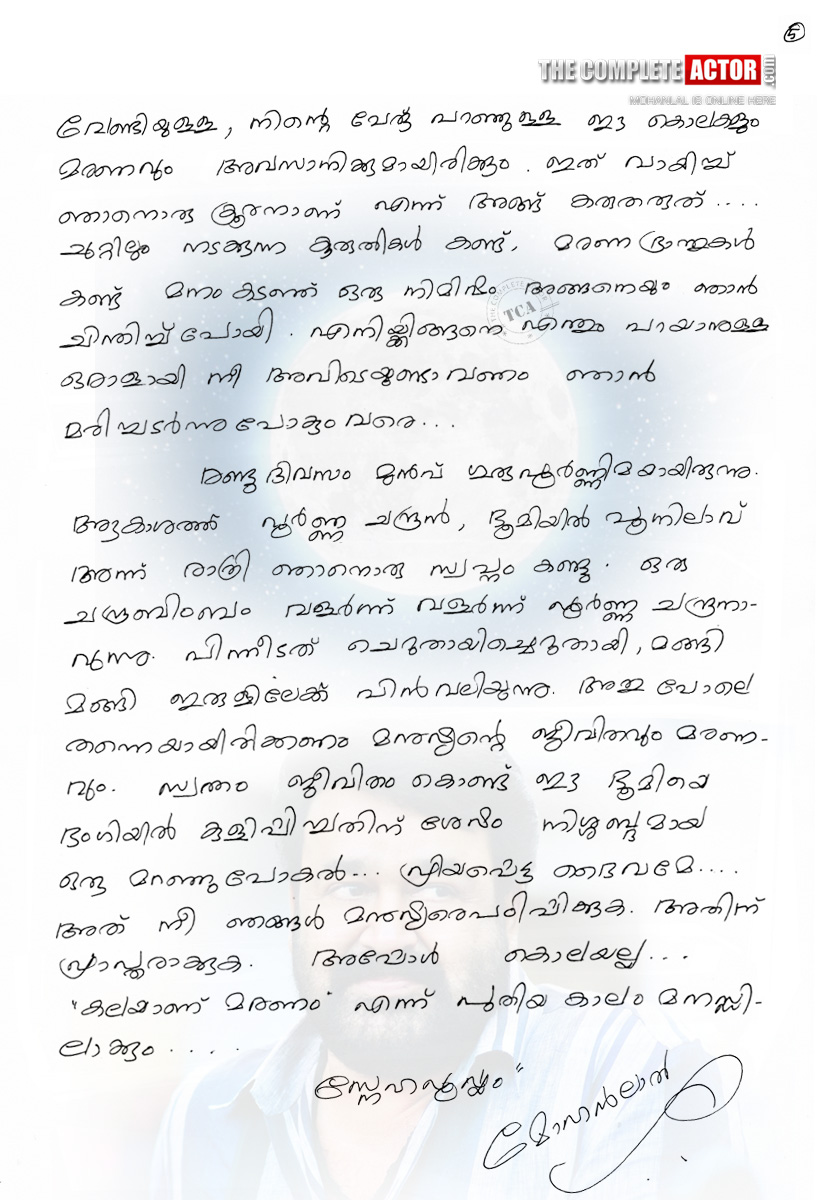 5
THE COMPLETE ACTOR.com
MOHANLAL IS ONLINE HERE
വേണ്ടിയുള്ള, നിന്റെ പേര് പറഞ്ഞുള്ള ഈ കൊലകളും
മരണവും അവസാനിക്കുമായിരിക്കും. ഇത് വായിച്ച്
ഞാനൊരു ക്രൂരനാണ് എന്ന് അങ്ങ് കരുതരുത്....
ചുറ്റിലും നടക്കുന്ന ക്രൂരതകൾ കണ്ട്, മരണ ഭ്രാന്തുകൾ
കണ്ട് മനം കടഞ്ഞ് ഒരു നിമിഷം അങ്ങനെയും ഞാൻ
ചിന്തിച്ച് പോയി. എനിയ്ക്കിങ്ങനെ എന്തും പറയാനുള്ള
ഒരാളായി നീ അവിടെയുണ്ടാവണം ഞാൻ
മരിച്ചടർന്നു പോകും വരെ...
രണ്ടു ദിവസം മുൻപ് ഗുരുപൂർണ്ണിമയായിരുന്നു.
ആകാശത്ത് പൂർണ്ണ ചന്ദ്രൻ, ഭൂമിയിൽ പൂനിലാവ്
അന്ന് രാത്രി ഞാനൊരു സ്വപ്നം കണ്ടു. ഒരു
ചന്ദ്രബിംബം വളർന്ന് വളർന്ന് പൂർണ്ണ ചന്ദ്രനാ-
വുന്നു. പിന്നീടത് ചെറുതായിച്ചെറുതായി, മങ്ങി
മങ്ങി ഇരുളിലേക്ക് പിൻവലിയുന്നു. അതു പോലെ
തന്നെയായിരിക്കണം മനുഷ്യന്റെ ജീവിതവും മരണ-
വും. സ്വന്തം ജീവിതം കൊണ്ട് ഈ ഭൂമിയെ
ഭംഗിയിൽ കുളിപ്പിച്ചതിന് ശേഷം നിശ്ശബ്ദമായ
ഒരു മറഞ്ഞുപോകൽ... പ്രിയപ്പെട്ട ദൈവമേ....
അത് നീ ഞങ്ങൾ മനുഷ്യരെ പഠിപ്പിക്കുക. അതിന്
പ്രാപ്തരാക്കുക. അപ്പോൾ കൊലയല്ല...
"കലയാണ് മരണം" എന്ന് പുതിയ കാലം മനസ്സി-
ലാക്കും....
സ്നേഹപൂർവ്വം"
മോഹൻലാൽ
TCA